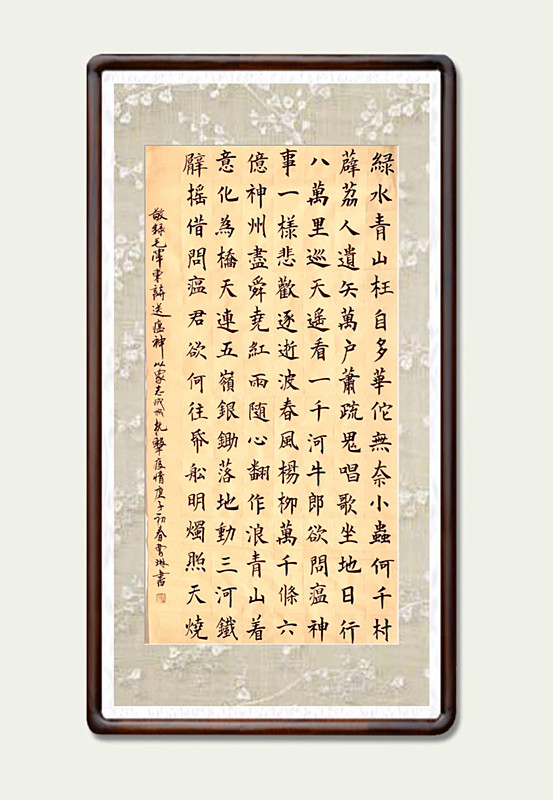 綠水青山枉自多華佗無奈小蟲何千村
薜荔人遺矢萬户蕭疏鬼唱歌坐地日行
八萬里巡天遥看一千河牛郎欲問瘟神
事一樣悲歡逐逝波春風楊柳萬千條六
億神州盡舜堯紅雨随心翻作浪青山着
意化為橋天連五嶺銀鋤落地動三河鐵
臂摇借問瘟君欲何往帋船明燭照天燒
敬録毛澤東詩送瘟神以衆志成城抗擊疫情庚子初春琳書